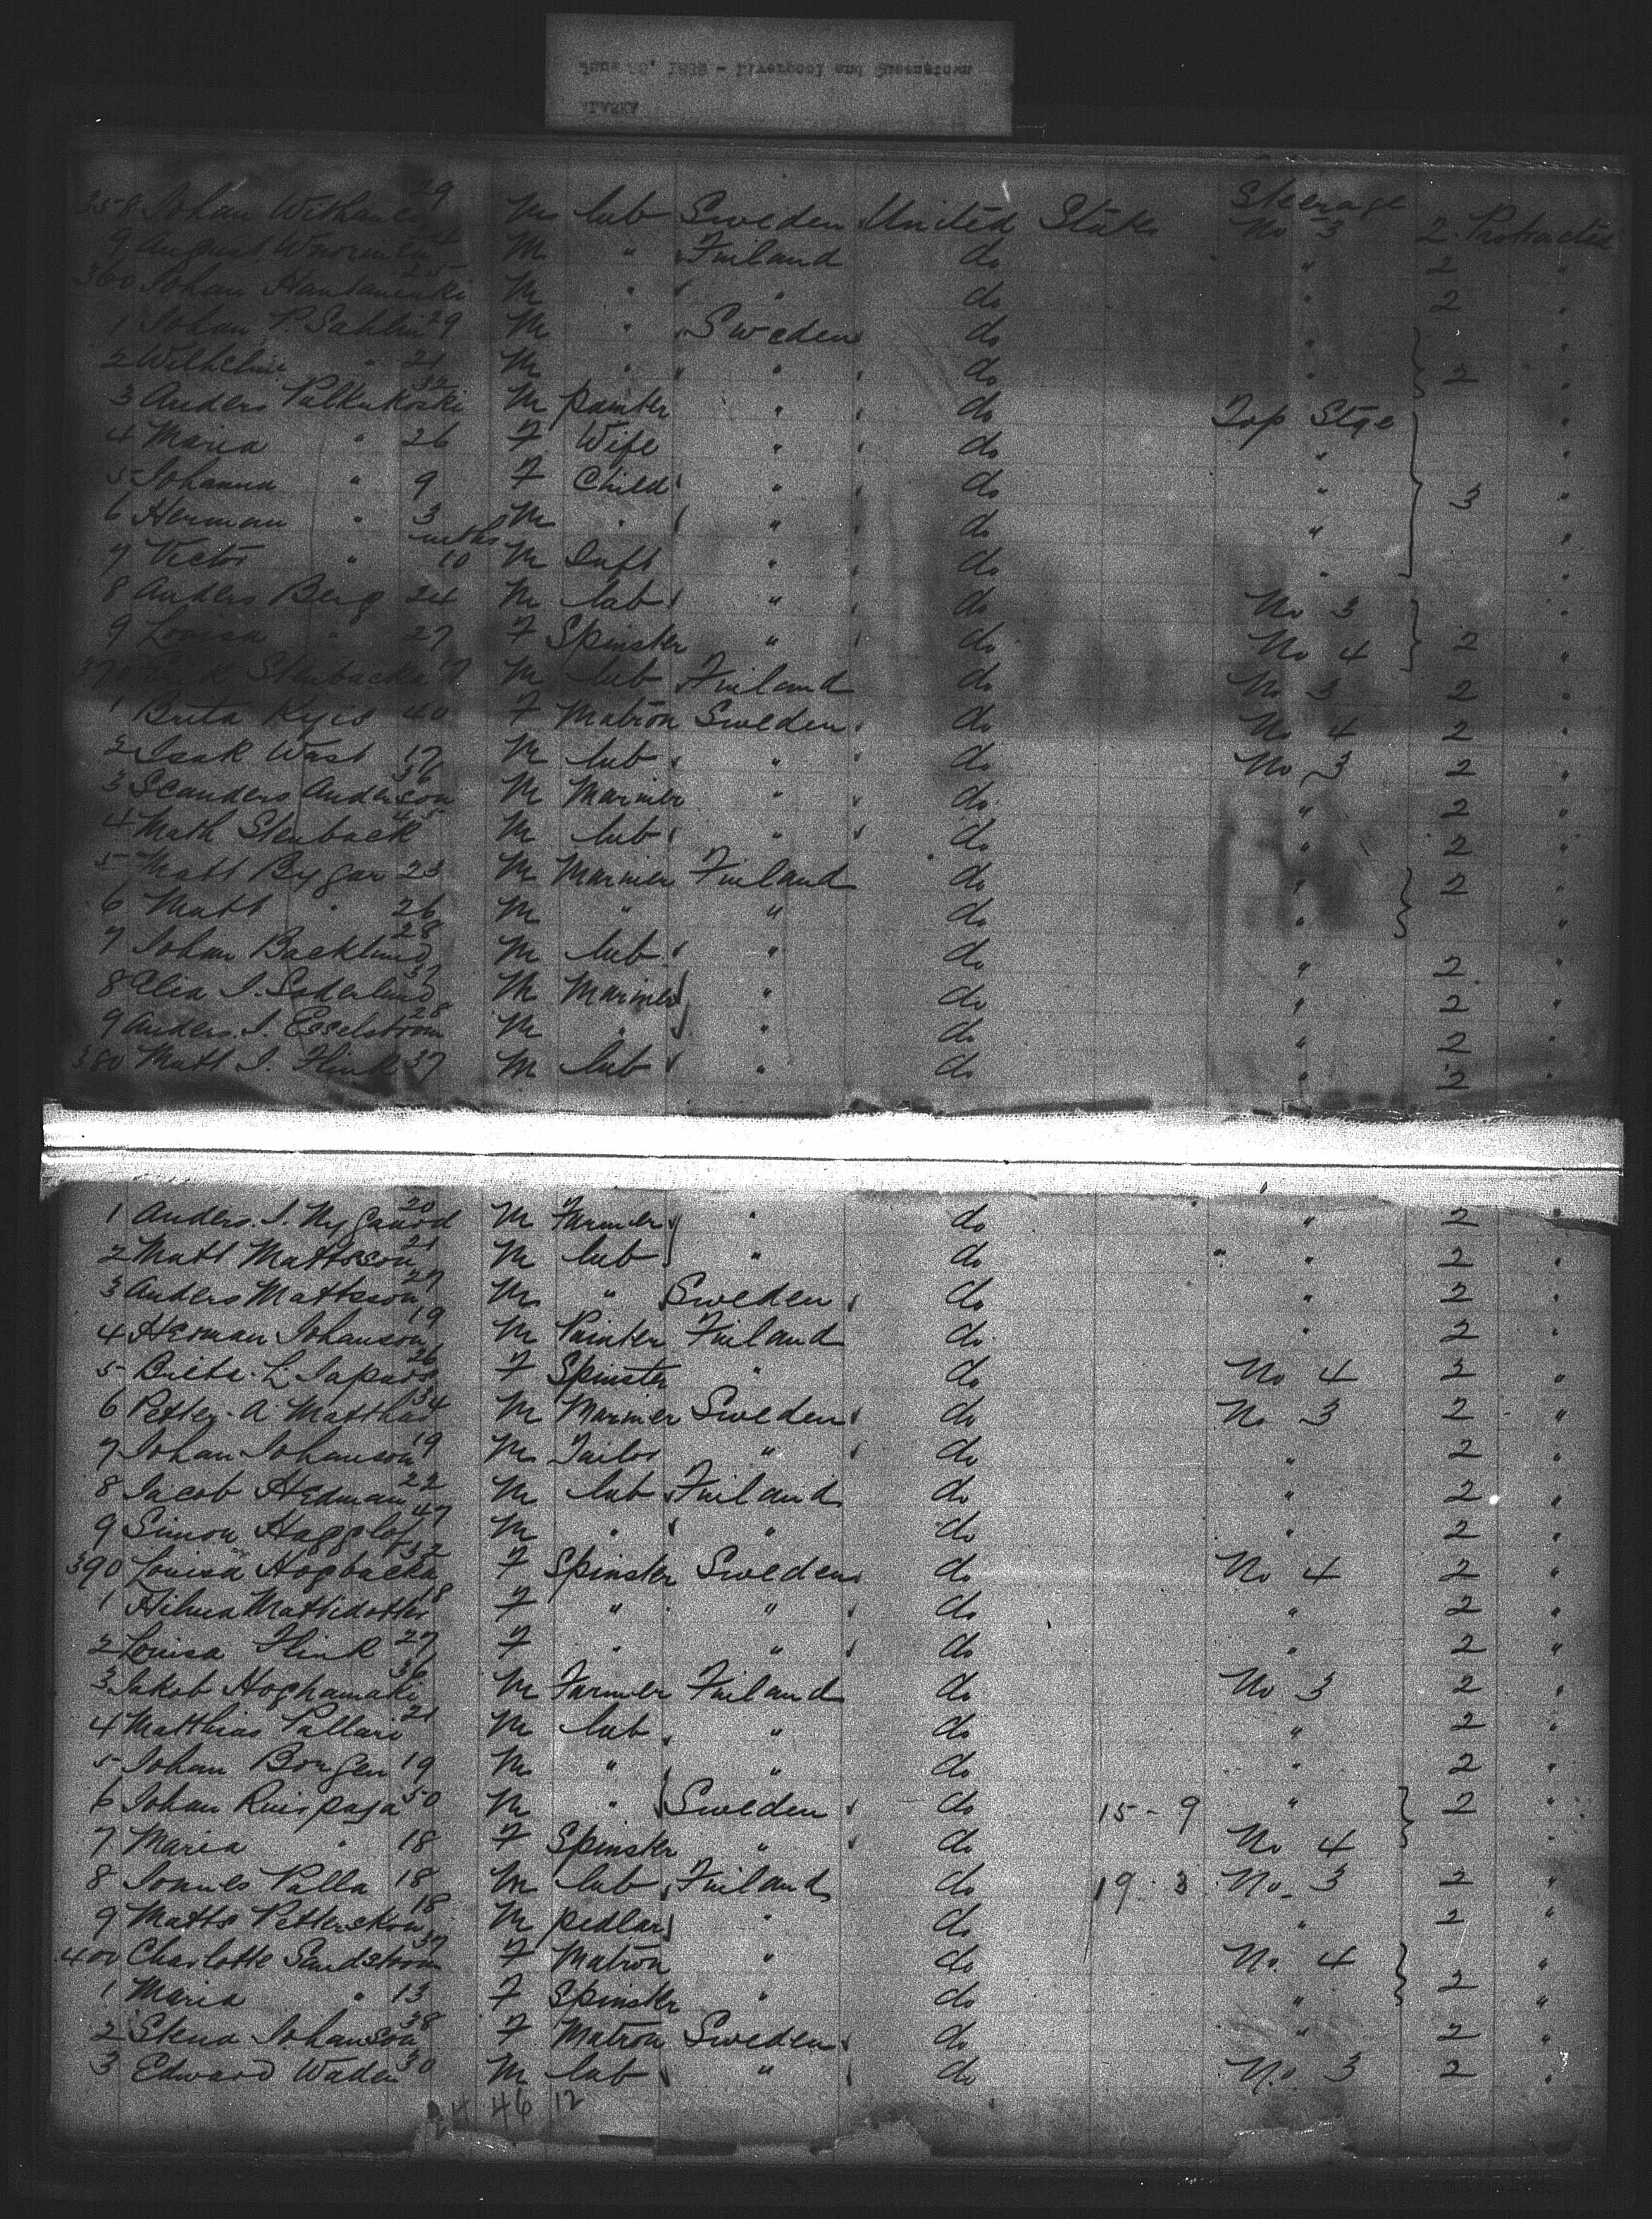 ALASKA
June 26, 1892 - Liverpool and Queenstown
29 Steerage
358 Johan M lab Sweden United States No 3 2 Protracted
9 August M " Finland do " 2 "
25
360 Johan M " " do " 2 "
1 Johan P. Sahlin 29 M " Sweden do " "
2 Wilhelm " 21 M " " do " 2 "
32
3 Anders Palkukoski M painter " do Top Stge "
4 Maria " 26 F Wife " do " "
5 Johanna " 9 F Child " do " 3 "
6 Herman " 3 M " " do " "
mths
7 Victor " 10 M Inft " do " "
8 Anders Berg 24 M lab " do No 3 "
9 Lovisa " 27 F Spinster " do No 4 2 "
370 Erik Stenbacka 17 M lab Finland do No 3 2 "
1 Brita 40 F Matron Sweden do No 4 2 "
2 Isak Wast 17 M lab " do No 3 2 "
36
3 Anderson M Mariner " do " 2 "
45
4 Math Stenback M lab " do " 2 "
5 Matt Bygar 23 M Mariner Finland do " 2 "
6 Matt " 26 M " " do "
28
7 Johan Backlund M lab " do " 2 "
37
8 Elia I. Soderlund M Mariner " do " 2 "
28
9 Anders. I. Esselstrom M " " do " 2 "
380 Matt I. Flink 37 M lab " do " 2 "
20
1 Anders. I. Nygaard M Farmer " do " 2 "
21
2 Matt Mattsson M lab " do " 2 "
27
3 Anders Mattsson M " Sweden do " 2 "
19
4 Herman Johanson M Painter Finland do " 2 "
26
5 Brita. L. F Spinster " do No 4 2 "
34
6 Petter. A. M Mariner Sweden do No 3 2 "
7 Johan Johanson 19 M Tailor " do " 2 "
22
8 Jacob Hedman M lab Finland do " 2 "
47
9 Simon Hagglof M " " do " 2 "
52
390 Lovisa Hogbacka F Spinster Sweden do No 4 2 "
18
1 Hilma Mattsdotter F " " do " 2 "
2 Lovisa Flink 27 F " " do " 2 "
36
3 Jakob Hoghamaki M Farmer Finland do No 3 2 "
21
4 Matthias Pallari M lab " do " 2 "
5 Johan Borgen 19 M " " do " 2 "
6 Johan Ruispaja 50 M " Sweden do 15 - 9 " 2 "
7 Maria " 18 F Spinster " do No 4 "
8 Palla 18 M lab Finland do 19 . 3 No. 3 2 "
18
9 Matts M pedlar " do " 2 "
37
400 Charlotte Sandstrom F Matron " do No. 4 "
1 Maria " 13 F Spinster " do " 2 "
38
2 Stena Johanson F Matron Sweden do " 2 "
3 Edward Waden 30 M lab " do No. 3 2 "
46 12